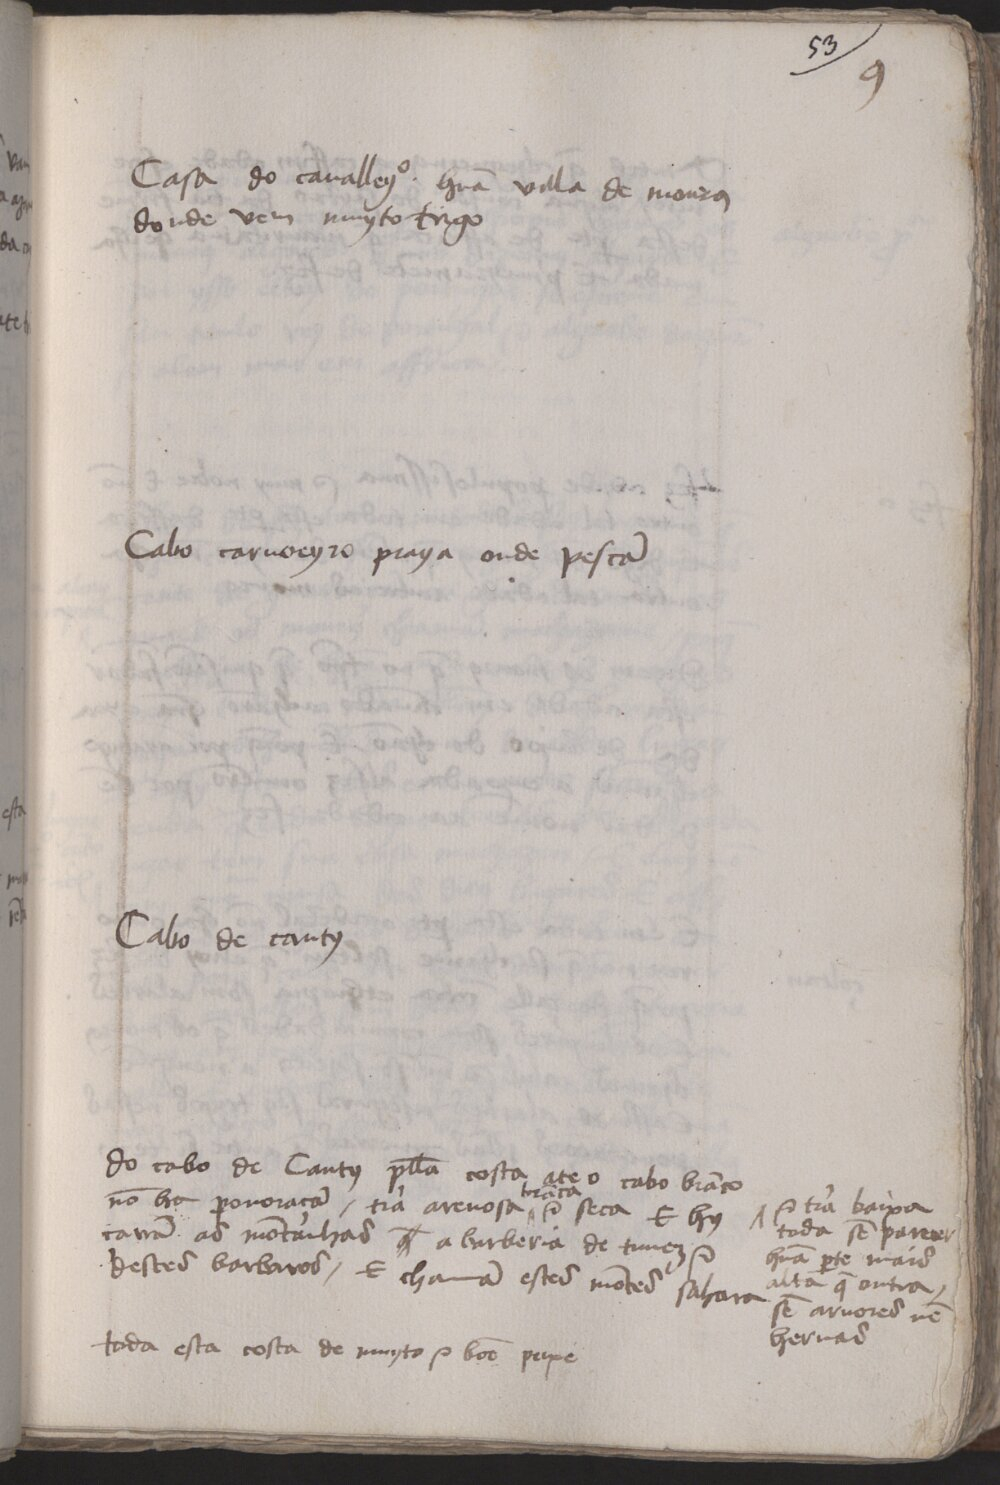 53
9
Casa do cavalleyº. huã villa de mouros
donde vem muyto trigo
Cabo carvoeyro praya onde pescã
Cabo de canty
do cabo de Canty pella costa ate o cabo brãco
nõ ha povoraçã / trã arenosa brãca & seca E hy
carrã as montanhas a barberia de tunez &
destes barbaros / E chamã estes mõtes sahara
/\ & trã baixa
toda sẽ parecer
huã pte mais
alta q̃ outra /
sẽ arvores nẽ
hervas
toda esta costa de muyto & boõ pexe